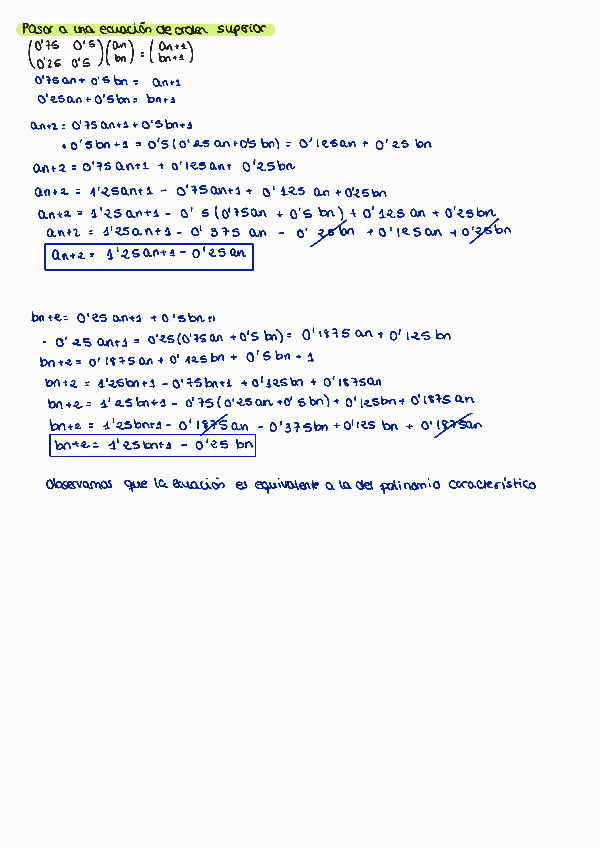 Pasar a una ecuación de orden superior
(0'75 0'5) (an) = (an+1)
(0'25 0'5) (bn) (bn+1)
0'75an + 0'5bn = an+1
0'25an + 0'5bn = bn+1
an+2 = 0'75an+1 + 0'5bn+1
• 0'5bn+1 = 0'5(0'25an+0'5bn) = 0'125an + 0'25bn
an+2 = 0'75an+1 + 0'125an + 0'25bn
an+2 = 1'25an+1 - 0'75an+1 + 0'125an + 0'25bn
an+2 = 1'25an+1 - 0'5(0'75an + 0'5bn) + 0'125an + 0'25bn
an+2 = 1'25an+1 - 0'375an - 0'25bn + 0'125an + 0'25bn
an+2 = 1'25an+1 - 0'25an
bn+2 = 0'25an+1 + 0'5bn+1
• 0'25an+1 = 0'25(0'75an + 0'5bn) = 0'1875an + 0'125bn
bn+2 = 0'1875an + 0'125bn + 0'5bn+1
bn+2 = 1'25bn+1 - 0'75bn+1 + 0'125bn + 0'1875an
bn+2 = 1'25bn+1 - 0'75(0'25an + 0'5bn) + 0'125bn + 0'1875an
bn+2 = 1'25bn+1 - 0'1875an - 0'375bn + 0'125bn + 0'1875an
bn+2 = 1'25bn+1 - 0'25bn
Observamos que la ecuación es equivalente a la del polinomio característico